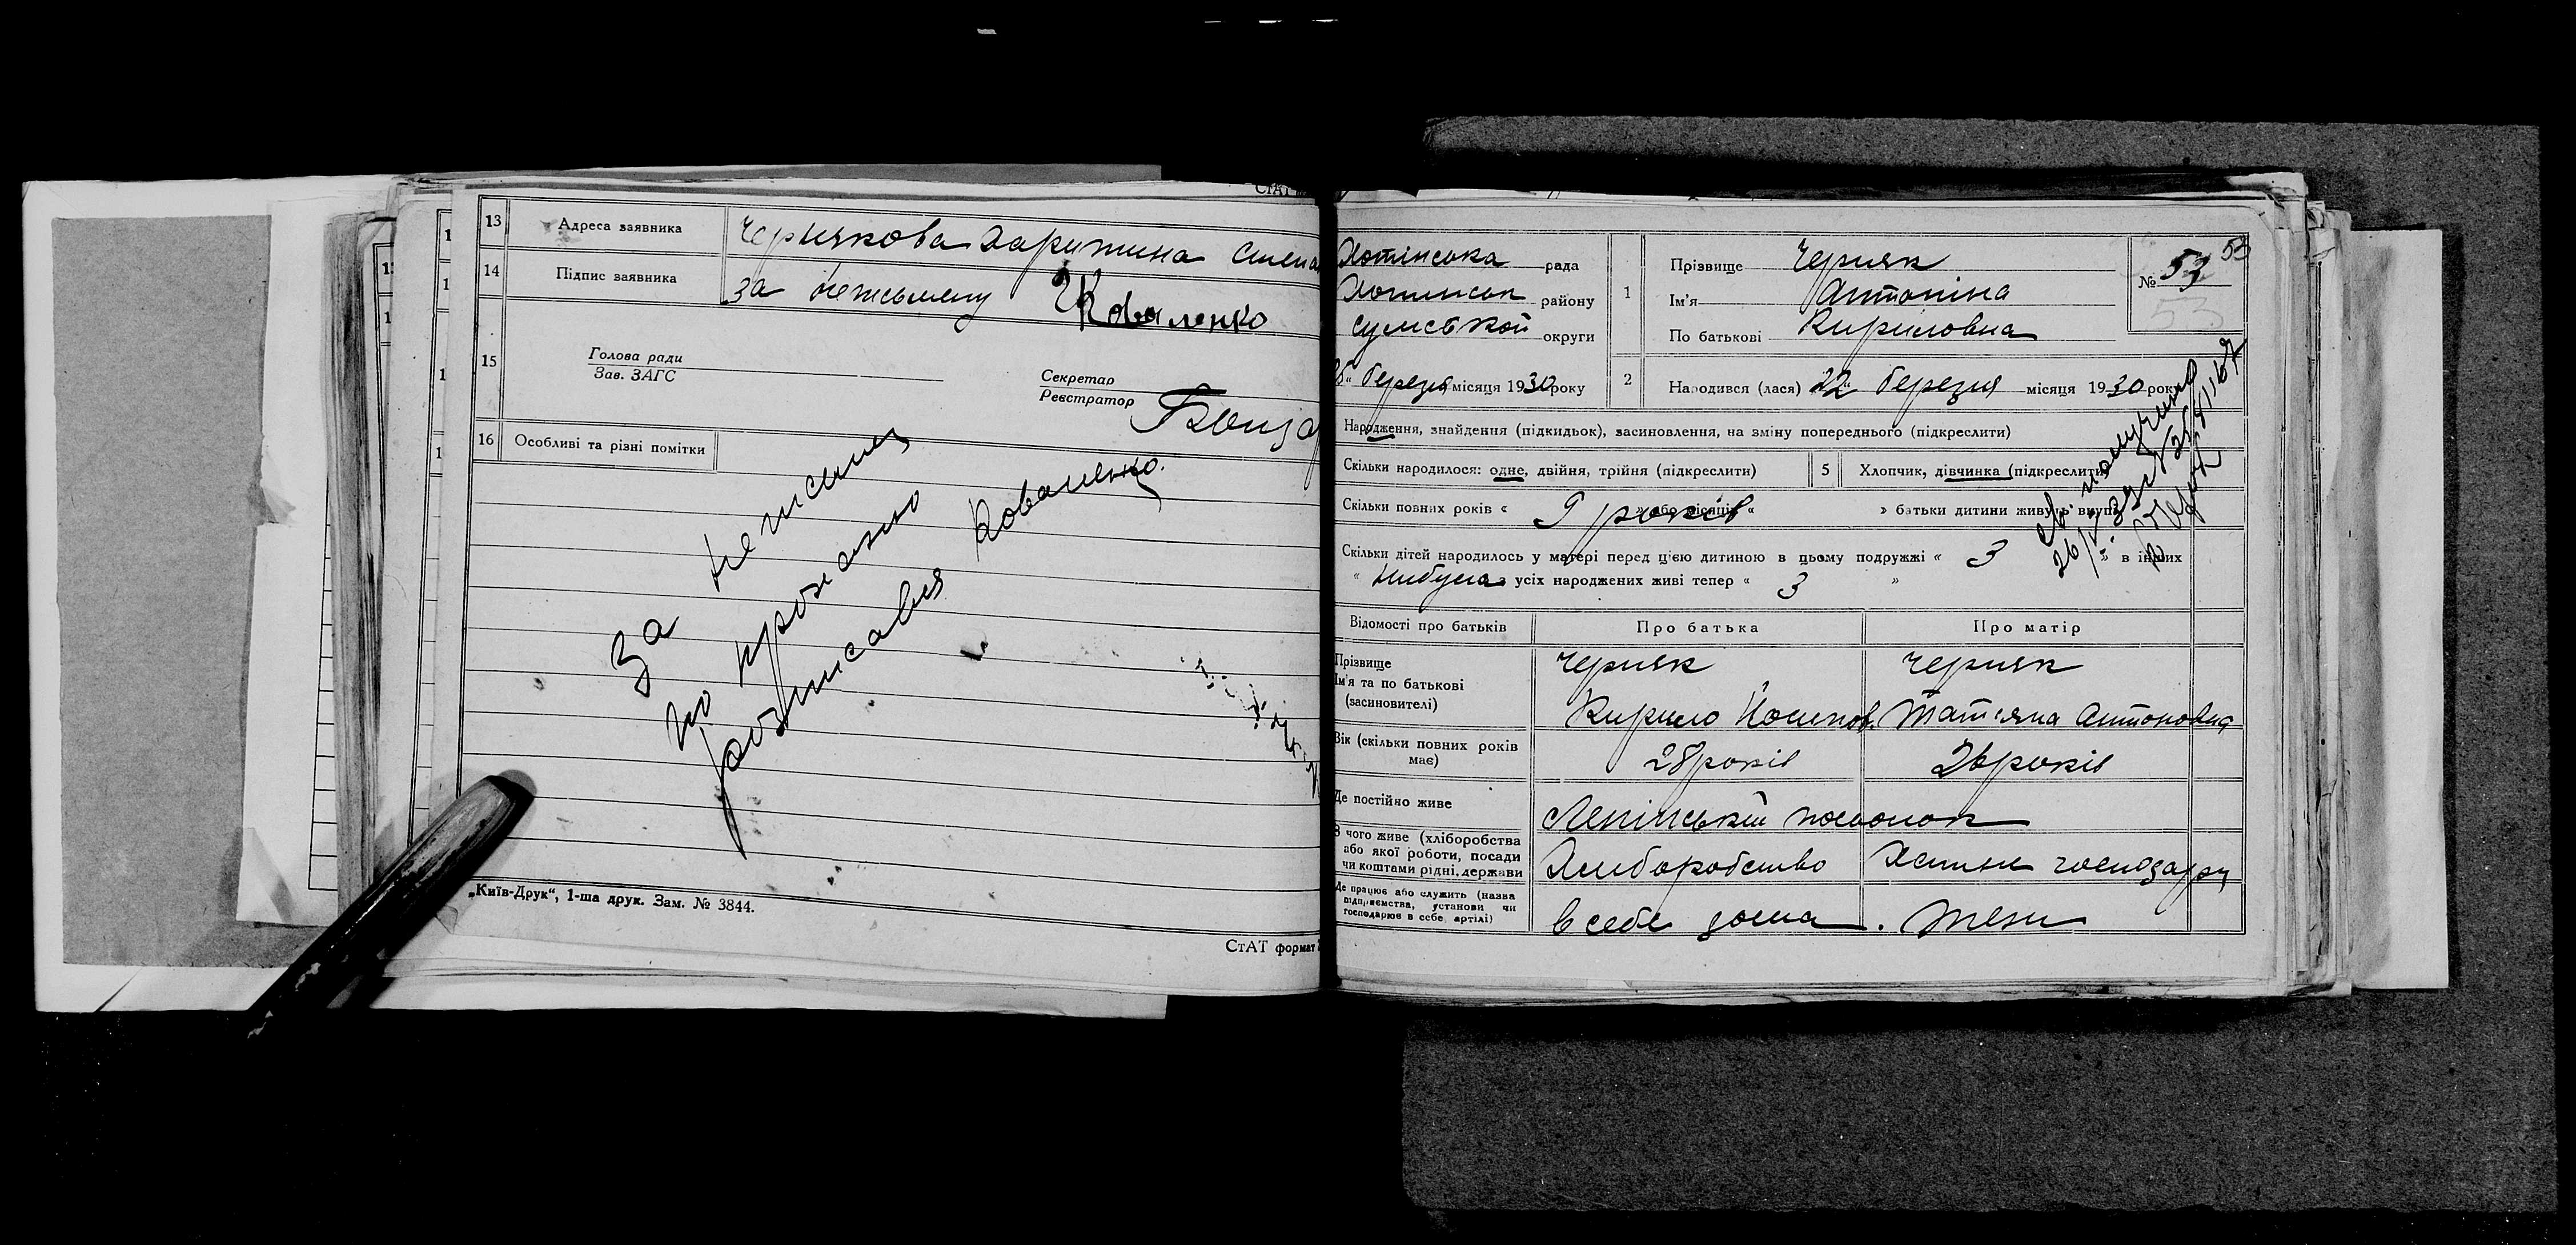 13 Адреса заявника Чернякова Харитина Степа
14 Підпис заявника за неписьмену Коваленко
15 Голова ради
Зав. ЗАГС
Секретар
Реєстратор
16 Особливі та різні помітки
За
по
розписався Коваленко.
„Київ-Друк“, 1-ша друк. Зам. № 3844.
СтАТ формат
Хотінська рада
Хотинськ району
Сумської округи
березня місяця 1930 року
1 Прізвище Черняк
Ім'я Антоніна
По батькові Кириловна
№ 53 53
53
2 Народився (лася) „22“ березня місяця 1930 року
Народження, знайдення (підкидьок), засиновлення, на зміну попереднього (підкреслити)
Скільки народилося: одне, двійня, трійня (підкреслити) 5 Хлопчик, дівчинка (підкреслити)
Скільки повних років « 9 років » або місяців « » батьки дитини живуть вкупі
Скільки дітей народилось у матері перед цією дитиною в цьому подружжі « 3 » в інших
« усіх народжених живі тепер « 3 »
Відомості про батьків Про батька Про матір
Прізвище Черняк Черняк
Ім'я та по батькові
(засиновителі) Кирило Йосипов. Татіяна Антоновна
Вік (скільки повних років
має) 28 років 26 років
Де постійно живе Ленінський посьолок
З чого живе (хліборобства
або якої роботи, посади
чи коштами рідні, держави Хліборобство Хатнє господар
Де працює або служить (назва
підприємства, установи чи
господарює в себе, артілі) в себе дома. теж